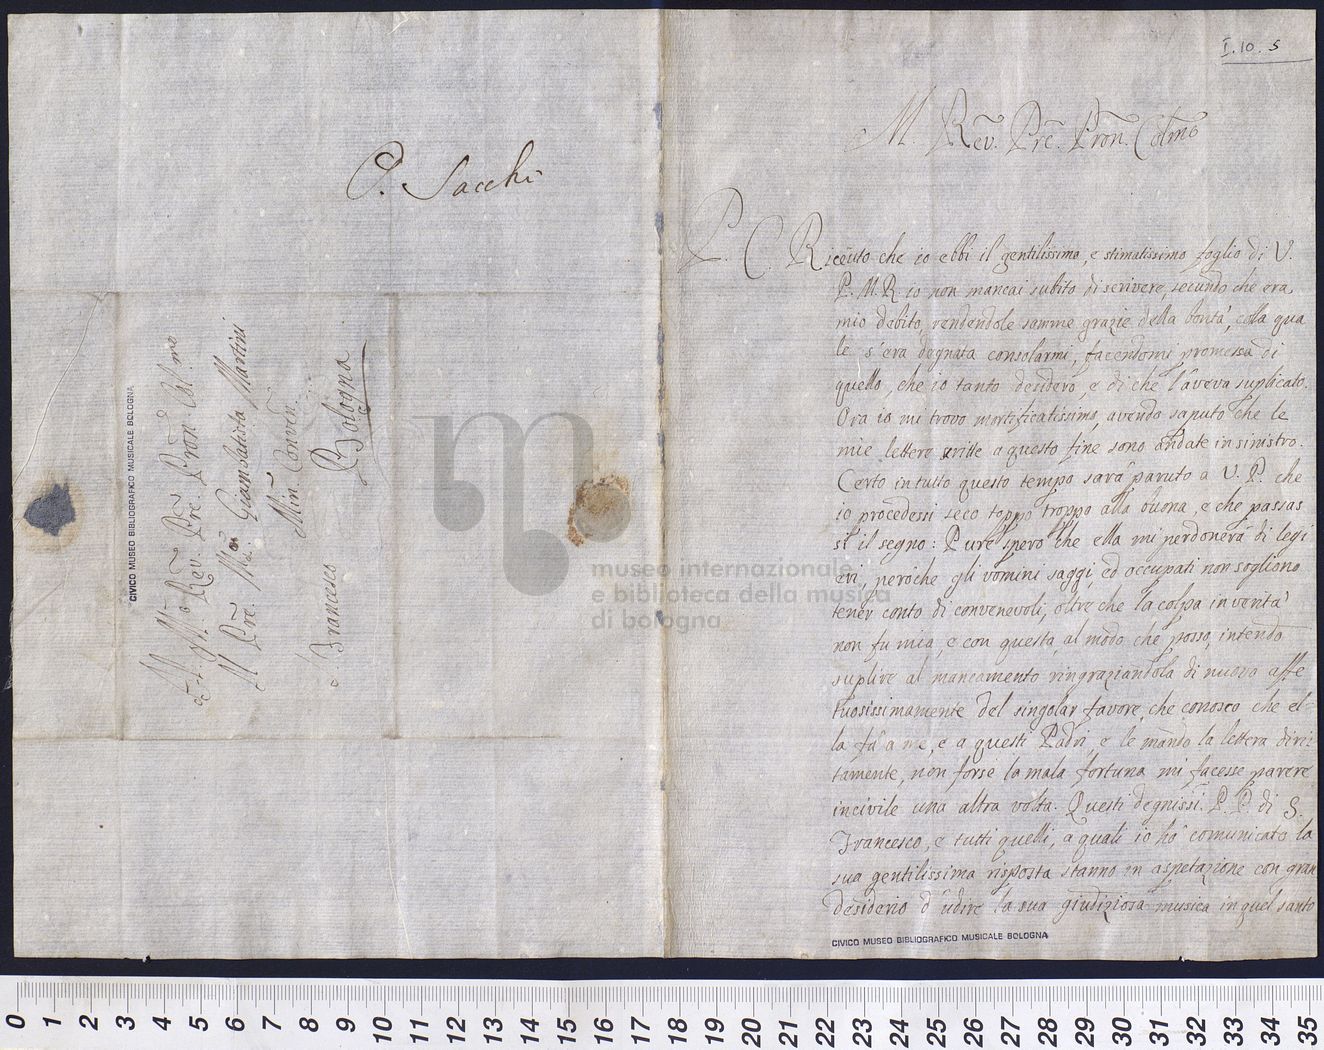 P. Sacchi
Al M. Rev. Prē. Pron Col.mo
Il Prē. Mo. Giambatista Martini
Min. Conven.
Bologna
S. Francesco
CIVICO MUSEO BIBLIOGRAFICO MUSICALE BOLOGNA
I. 10. 5
M. Rev. Prē. Pron. Colmo
P. C. Riceuto che io ebbi il gentilissimo, e stimatissimo foglio di V.
P. M. R. io non mancai subito di scrivere, secundo che era
mio debito, rendendole somme grazie della bontà, colla qua
le s'era degnata consolarmi, facendomi promessa di
quello, che io tanto desidero, e di che l'aveva suplicato.
Ora io mi trovo mortificatissimo, avendo saputo che le
mie lettere scritte a questo fine sono andate in sinistro.
Certo in tutto questo tempo sarà paruto a V. P. che
io procedessi seco toppo troppo alla buona, e che passas
si il segno: Pure spero che ella mi perdonerà di legi
eri, peroche gli uomini saggi, ed occupati non sogliono
tener conto di convenevoli, oltre che la colpa in verità
non fu mia, e con questa, al modo che posso, intendo
suplire al mancamento ringraziandola di nuovo affe
tuosissimamente del singolar favore, che conosco che el
la fà a me, e a questi Padri, e le mando la lettera diri
tamente, non forse la mala fortuna mi facesse parere
incivile una altra volta. Questi degnissi. P. P. di S.
Francesco, e tutti quelli, a quali io hò comunicato la
sua gentilissima risposta stanno in aspetazione con gran
desiderio d'udire la sua giudiziosa musica in quel santo
CIVICO MUSEO BIBLIOGRAFICO MUSICALE BOLOGNA
museo internazionale
e biblioteca della musica
di bologna
0 1 2 3 4 5 6 7 8 9 10 11 12 13 14 15 16 17 18 19 20 21 22 23 24 25 26 27 28 29 30 31 32 33 34 35